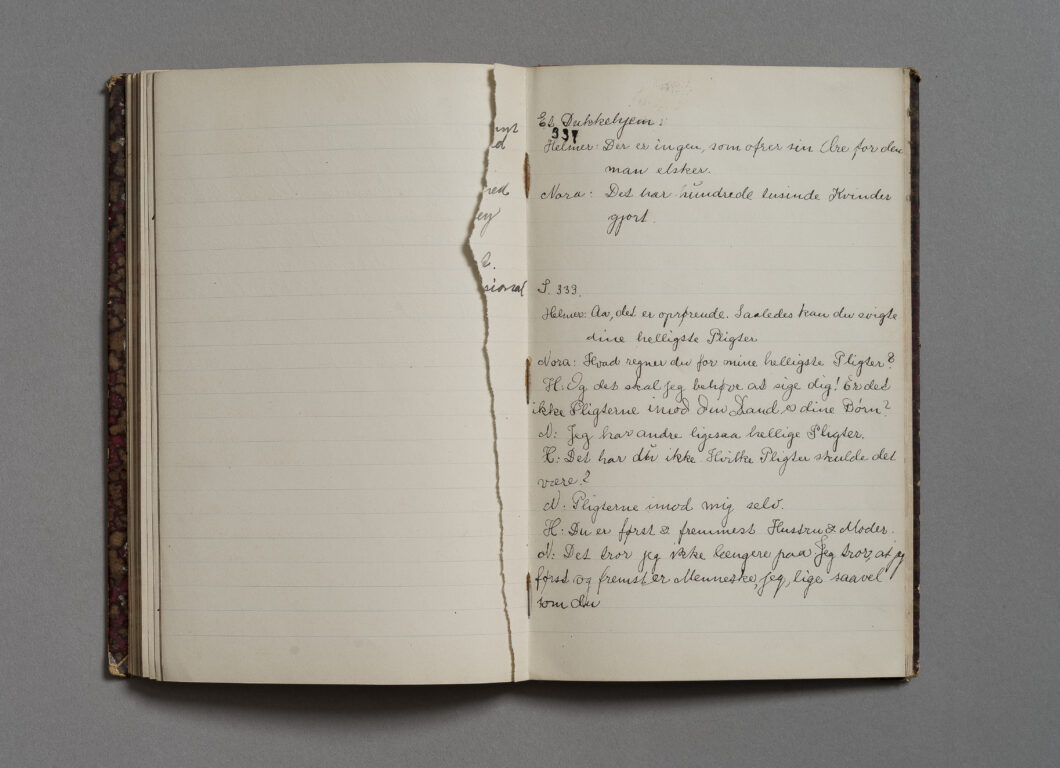 nt
d
red
ey
?.
sional
Et Dukkehjem:
337
Helmer: Der er ingen, som ofrer sin Ære for den
man elsker.
Nora: Det har hundrede tusinde Kvinder
gjort.
S. 339.
Helmer: Aa, det er oprørende. Saaledes kan du svigte
dine helligste Pligter
Nora: Hvad regner du for mine helligste Pligter?
H: Og det skal jeg behøve at sige dig! Er det
ikke Pligterne imod din Mand & dine Børn?
N: Jeg har andre ligesaa hellige Pligter.
H: Det har du ikke. Hvilke Pligter skulde det
være?
N: Pligterne imod mig selv.
H: Du er først & fremmest Hustru & Moder.
N: Det tror jeg ikke længere paa Jeg tror, at jeg
først og fremst er Menneske, jeg, lige saavel
som du